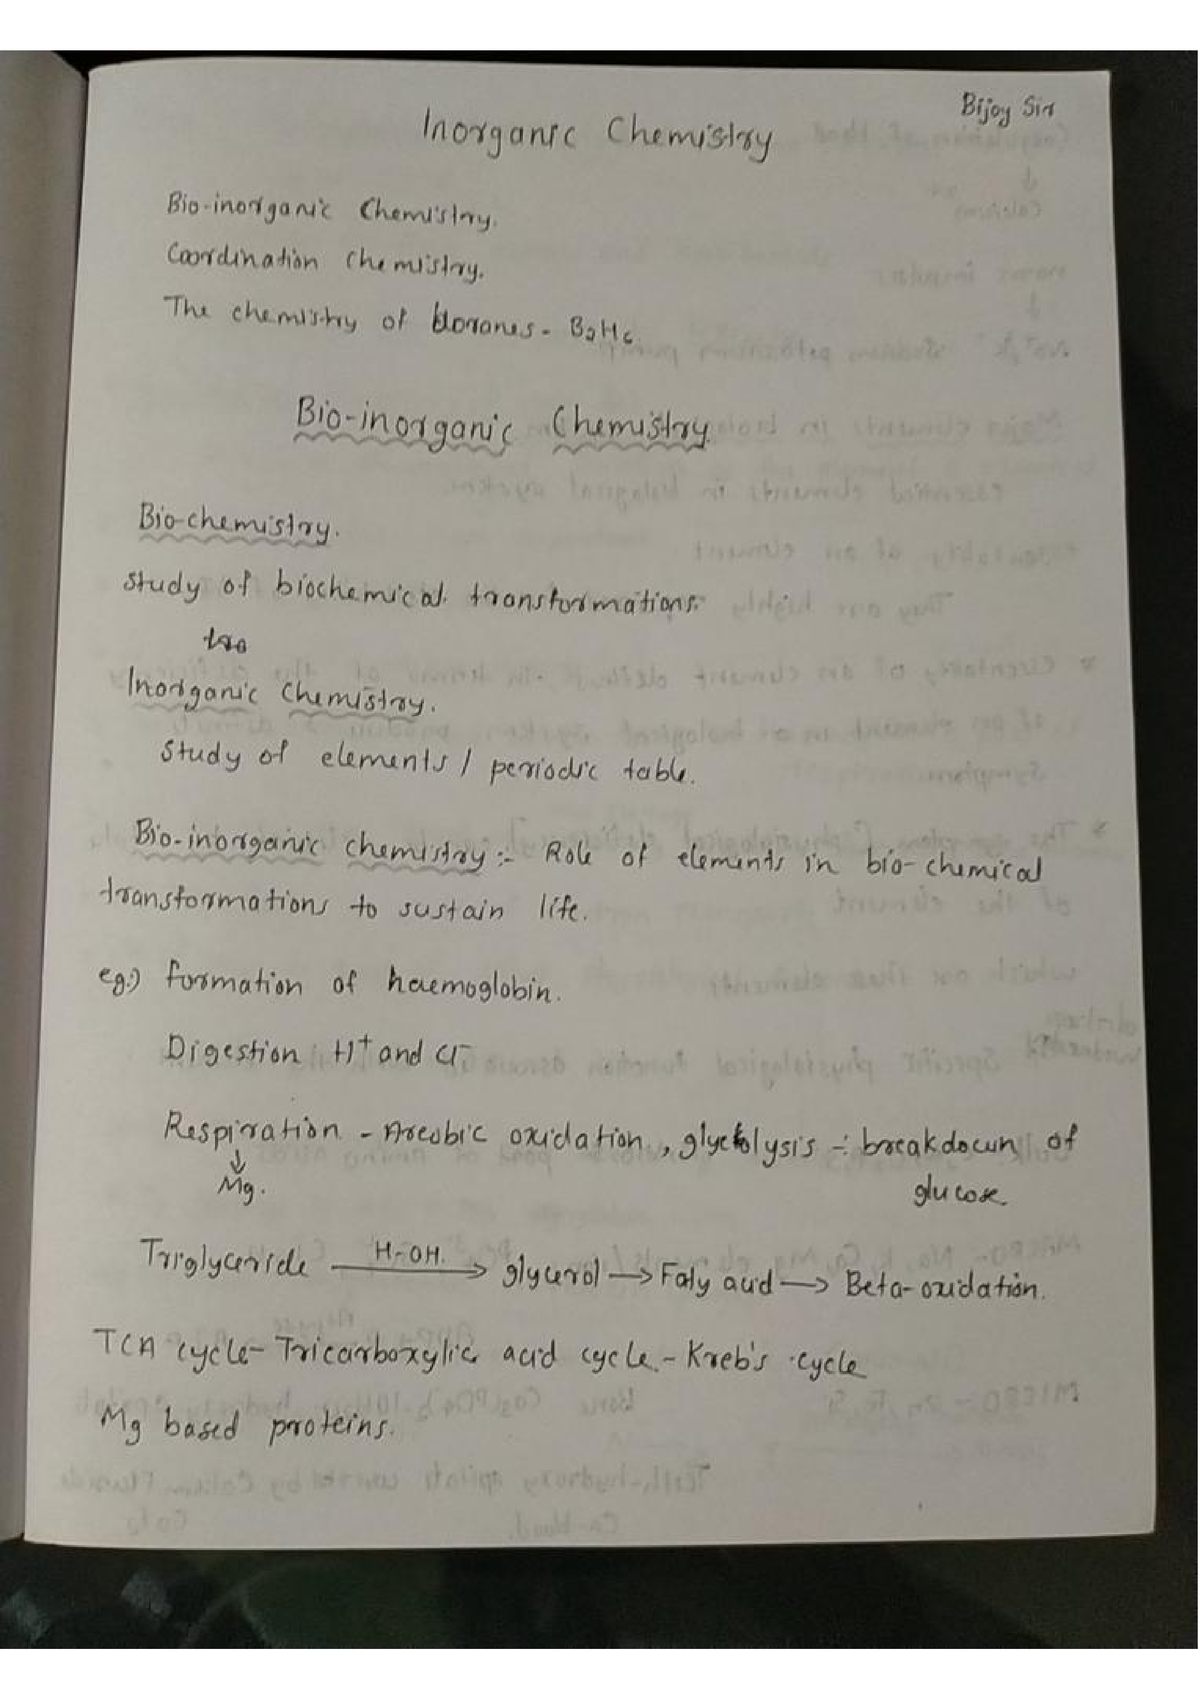 Bijoy Sir
Inorganic Chemistry
Bio-inorganic Chemistry.
Coordination chemistry.
The chemistry of boranes - B2H6
Bio-inorganic Chemistry
Bio-chemistry.
Study of biochemical transformations.
Inorganic Chemistry.
Study of elements / periodic table.
Bio-inorganic chemistry :- Role of elements in bio-chemical
transformations to sustain life.
eg:) formation of haemoglobin.
Digestion H+ and Cl-
Respiration - Areobic oxidation, glycolysis ÷ breakdown of
Mg. glucose.
Triglyceride H-OH. → glycerol → Faty acid → Beta-oxidation.
TCA cycle - Tricarboxylic acid cycle. - Kreb's cycle
Mg based proteins.